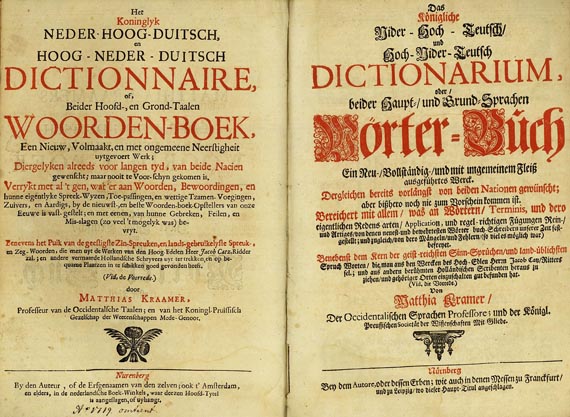 Het
Koninglyk
NEDER-HOOG-DUITSCH,
en
HOOG-NEDER-DUITSCH
DICTIONNAIRE,
of,
Beider Hoofd-, en Grond-Taalen
WOORDEN-BOEK,
Een Nieuw, Volmaakt, en met ongemeene Neerstigheit
uytgevoert Werk;
Diergelyken alreeds voor langen tyd, van beide Nacien
gewenscht; maar nooit te Voor-schyn gekomen is,
Verrykt met al 't gen, wat'er aan Woorden, Bewoordingen, en
hunne eigentlyke Spreek-Wyzen, Toe-passingen, en wettige Tzamen-Voegingen,
Zuivers, en Aardigs, by de nieuwst-, en beste Woorden-boek-Opstellers van onze
Eeuwe is vast-gestelt; en met eenen, van hunne Gebreken, Feilen, en
Mis-slagen (zo veel 't mogelyk was) be-
vryt.
Benevens het Puik van de geestigste Zin-Spreuken, en lands-gebruikelyste Spreuk-
en Zeg-Woorden, die men uyt de Werken van den Hoog-Edelen Heer Jacob Cats, Ridder
zal; en andere vermaarde Hollandsche Schryvers uyt te trekken, en op be-
quaame Plaatzen in te schikken goed gevonden heeft.
(Vid. de Voorrede.)
door
MATTHIAS KRAAMER,
Professor van de Occidentalsche Taalen; en van het Koningl-Pruissisch
Gezelschap der Weetenschappen Mede-Genoot.
Nurenberg
By den Auteur, of de Erfgenaamen van den zelven; ook t'Amsterdam,
en elders, in de nederlandsche Boek-Winkels, waar dezen Hoofd-Tytel
is aangeslagen, of uyhangt.
Ao 1719
Das
Königliche
Nider-Hoch-Teutsch/
und
Hoch-Nider-Teutsch
DICTIONARIUM,
oder/
beider Haupt-/und Grund-Sprachen
Wörter-Buch
Ein Neu-/Vollständig-/und mit ungemeinem Fleiß
ausgeführtes Werck.
Dergleichen bereits vorlängst von beiden Nationen gewünscht;
aber bißhero noch nie zum Vorschein kommen ist.
Bereichert mit allem/ was an Wörtern/ Terminis, und dero
eigentlichen Redens-arten/ Application, und regel-richtigen Fügungen Rein-/
und Artiges von denen neuest- und bewehrtesten Wörter-buch-Schreibern unserer Zeit fest-
gestellt; und zugleich/ von dero Mängeln/ und Fehlern/ (so viel es möglich war)
befreyet.
Benebenst dem Kern der geist-reichsten Sinn-Sprüchen/ und land-üblichsten
Spruch-Worten/ die man aus den Wercken des Hoch-Edlen Herrn Jacob Cats/ Ritters
sel.; und aus andern berühmten Holländischen Scribenten heraus zu
ziehen/ und gehöriger Orten einzuschalten gut befunden hat.
(Vid. die Vorrede.)
Von
Matthia Kramer/
Der Occidentalischen Sprachen Professore; und der Königl.
Preußischen Societät der Wissenschaften Mit-Gliede.
Nürnberg
Bey dem Autore, oder dessen Erben; wie auch in denen Messen zu Franckfurt/
und zu Leipzig/ wo dieser Haupt-Titul angeschlagen.